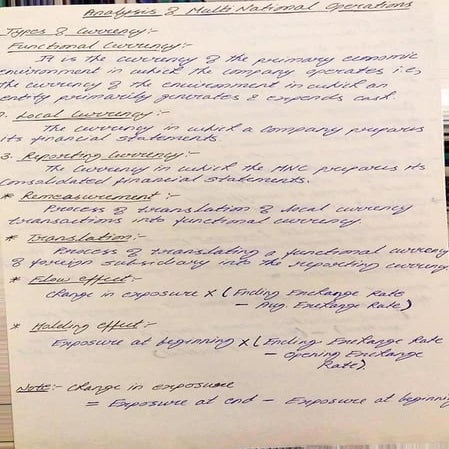 Analysis of Multi National Operations
Types of Currency:-
Functional Currency:-
It is the currency of the primary economic
environment in which the company operates i.e,
the currency of the environment in which an
entity primarily generates & expends cash.
2. Local Currency:-
The currency in which a company prepares
its financial statements.
3. Reporting Currency:-
The currency in which the MNC prepares its
consolidated financial statements.
* Remeasurement:-
Process of translation of local currency
transactions into functional currency.
* Translation:-
Process of translating a functional currency
of foreign subsidiary into the reporting currency
* Flow effect:-
change in exposure X (Ending Exchange Rate
- Avg. Exchange Rate)
* Holding effect:-
Exposure at beginning X (Ending Exchange Rate
- Opening Exchange
Rate).
Note:- change in exposure
= Exposure at end - Exposure at beginning